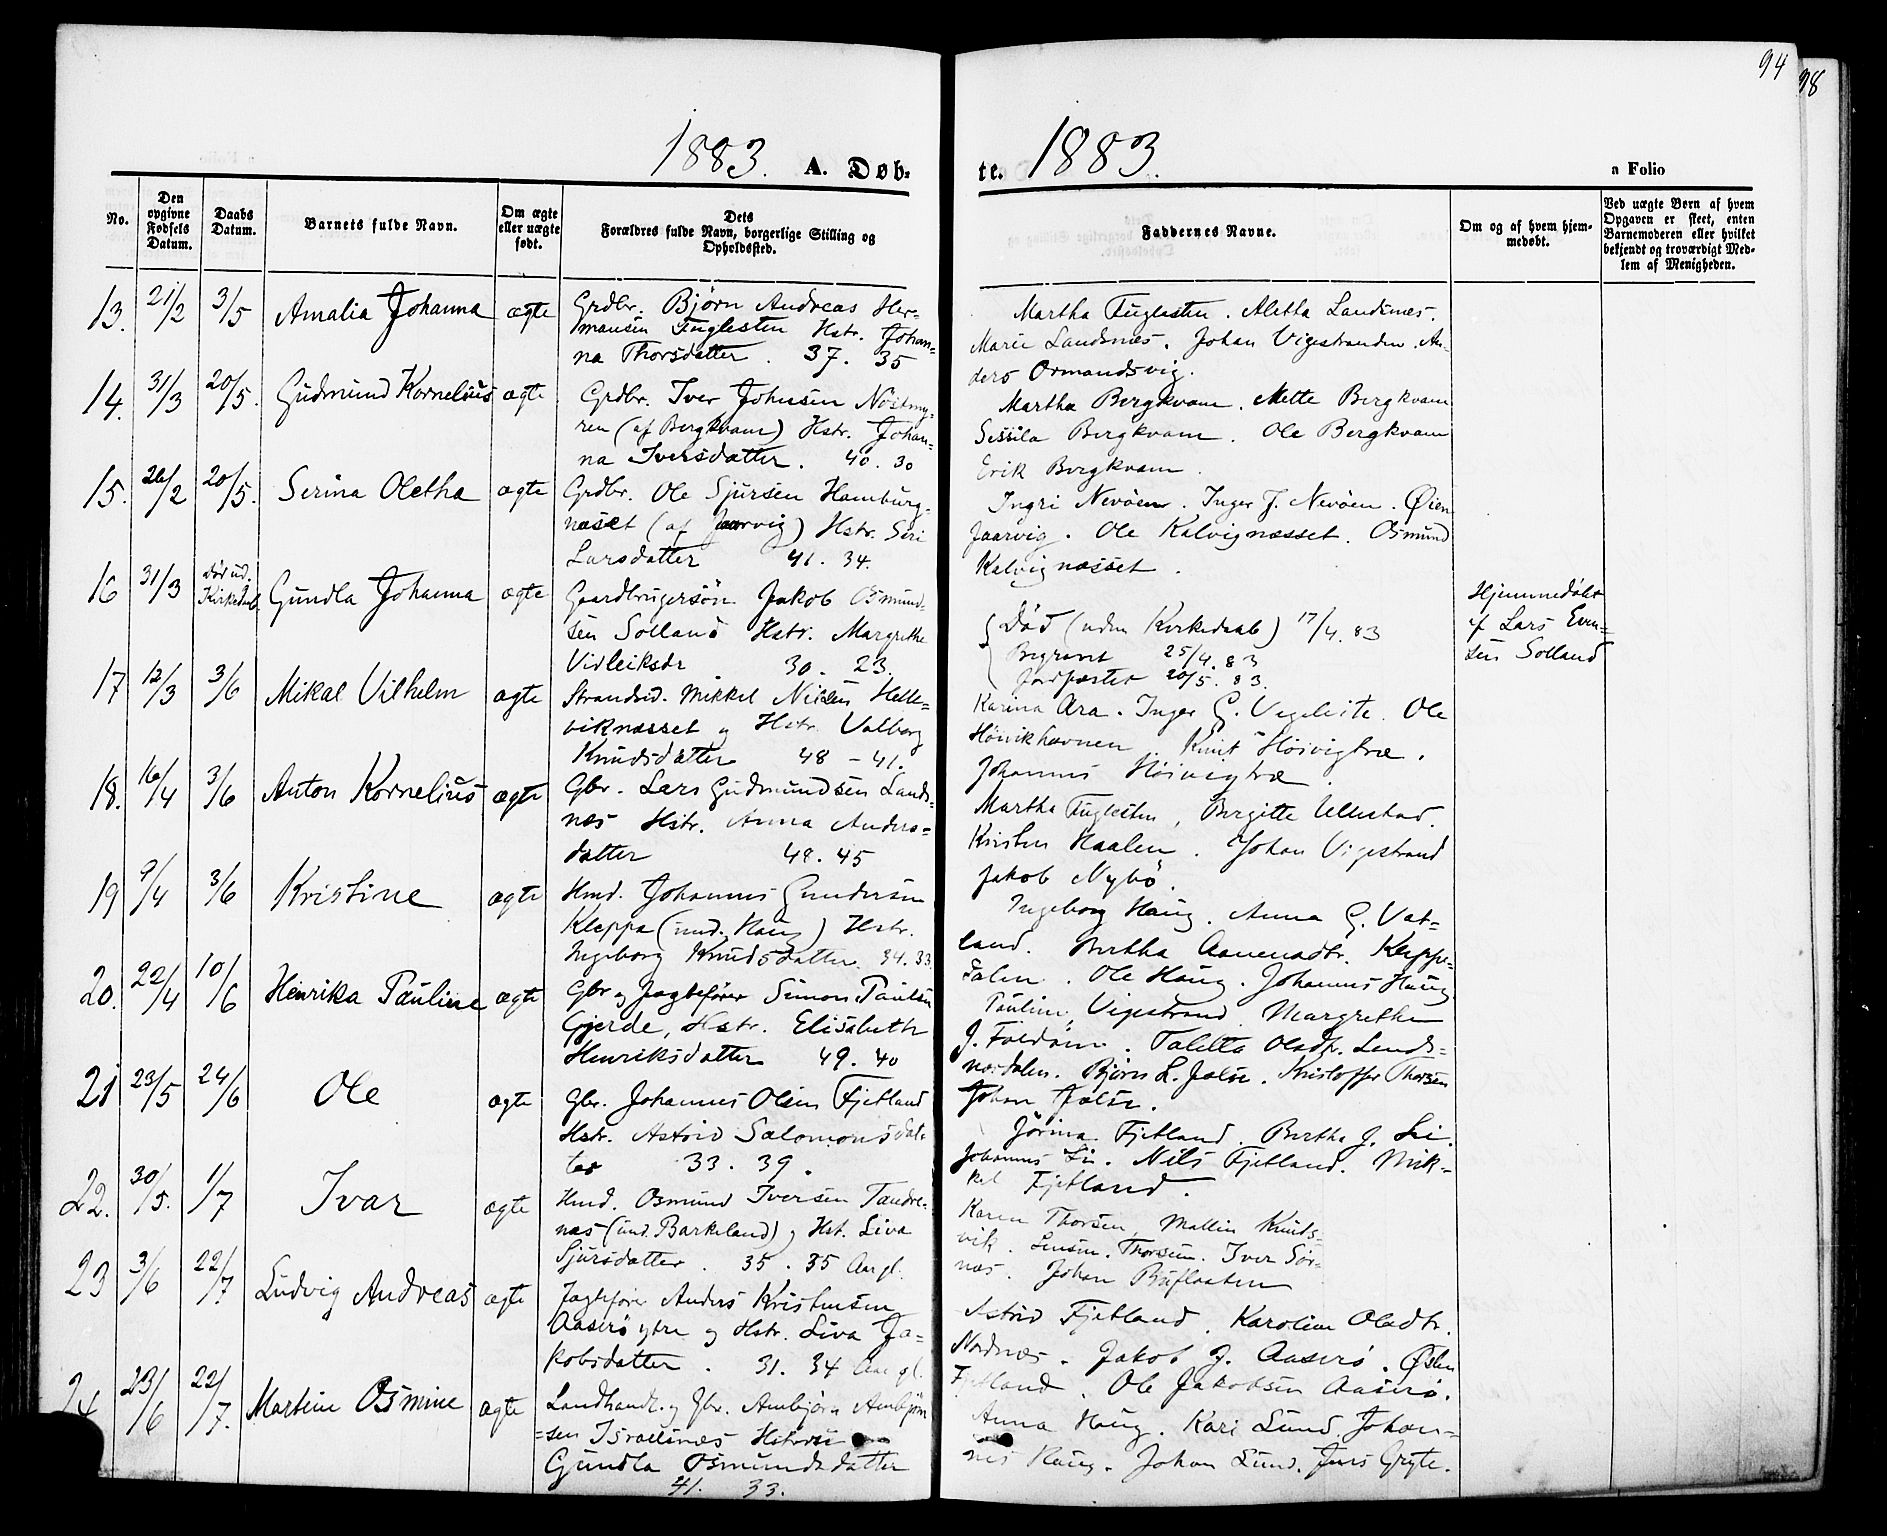 94
98
1883. A. Døb-
te. 1883.
a Folio
No.
Den opgivne Fødsels Datum.
Daabs Datum.
Barnets fulde Navn.
Om ægte eller uægte født.
Dets Forældres fulde Navn, borgerlige Stilling og Opholdssted.
Faddernes Navne.
Om og af hvem hjem-
medøbt.
Ved uægte Børn af hvem
Opgaven er skeet, enten
Barnemoderen eller hvilket
bekjendt og troværdigt Med-
lem af Menigheden.
13. 21/2 3/5 Amalia Johanna ægte Grdbr. Bjørn Andreas Her-
mansen Fuglesten Hstr. Johan-
na Thorsdatter . 37. 35
Martha Fuglesten . Aletta Landsnes.
Marie Landsnes. Johan Vigestranden. An-
ders Ormandsvig.
14. 31/3 20/5. Gudmund Kornelius ægte Grdbr. Iver Johnsen Nøstmy-
ren (af Bergkvam) Hstr. Johan-
na Iversdatter. 40. 30
Martha Bergkvam. Mette Bergkvam
Sessila Bergkvam. Ole Bergkvam
Erik Bergkvam.
15. 26/2 20/5. Serina Oletha ægte Grdbr. Ole Sjursen Hamburg-
næset (af Jaarvig) Hstr. Siri
Larsdatter 41. 34.
Ingri Nevøen. Inger J. Nevøen. Øien
Jaarvig. Ole Kalvignæsset. Osmund
Kalvignæsset.
16 31/3 Død ud.
Kirkedaab Gundla Johanna ægte Gaardbrugersøn Jakob Osmund-
sen Solland Hstr. Margrethe
Vidleiksdr. 30. 23.
Død (uden Kirkedaab) 17/4. 83
Begravet 25/4. 83
Jordfæstet 20/5. 83.
Hjemmedøbt
af Lars Even-
sen Solland
17 12/3 3/6 Mikal Vilhelm ægte Strandsid. Mikkel Nilsen Helle-
viknæsset og Hstr. Valborg
Knudsdatter 48 - 41.
Karina Ara. Inger G. Vegeleite. Ole
Høivikhavnen. Knut Høivigtræ.
Johannes Høivigtræ.
18. 16/4 3/6 Anton Kornelius ægte Gbr. Lars Gudmundsen Lands-
nes Hstr. Anna Anders-
datter 48. 45
Martha Fuglesten, Bergitte Ullestad.
Kirsten Haalen. Johan Vigestrand
Jakob Nybø.
19 9/4 3/6 Kristine ægte Hmd. Johannes Gundersen
Kleppa (und. Haug) Hstr.
Ingeborg Knudsdatter. 34. 33
Ingeborg Haug. Anna G. Vat-
land. Bertha Aamenadtr. Kleppe-
dalen. Ole Haug. Johannes Haug
20. 22/4 10/6 Henrika Pauline ægte Gbr og Jagtefører Simon Paulsen
Gjerde, Hstr. Elisabeth
Henriksdatter 49. 40
Pauline Vigestrand. Margrethe
J. Tolette Olsdtr. Lands-
nesdalen. Bjørn L. Kristoffer Thorsen
Johan
21 23/5 24/6 Ole ægte Gbr. Johannes Olsen Fjetland
Hstr. Astrid Salomonsdat-
ter 33. 39.
Jørina Fjetland. Bertha J. Li.
Johannes Li. Nils Fjetland. Mik-
kel Fjetland.
22. 30/5. 1/7 Ivar ægte Hmd. Osmund Iversen Tandre-
nes (und. Barkeland) og Hst. Siva
Sjursdatter. 35. 35 Aar gl.
Karen Thorsen, Mallin Knuds-
vik. Thorsen. Iver Sør-
nes. Johan
23 3/6 22/7. Ludvig Andreas ægte Jagtefører Anders Kristensen
Aaserø ytre og Hstr. Siva Ja-
kobsdatter. 31. 34 Aar gl.
Astrid Fjetland. Karoline Olsdtr.
Nordnes. Jakob J. Aaserø. Østen
Fjetland. Ole Jakobsen Aaserø.
24 23/6 22/7. Martine Osmine ægte Landhandl. og Gbr. Ambjørn Ambjørn-
sen Israelsnes Hstru
Gundla Osmundsdatter
41. 33.
Anna Haug. Kari Lund. Johan-
nes Haug. Johan Lund. Jens Gryte.